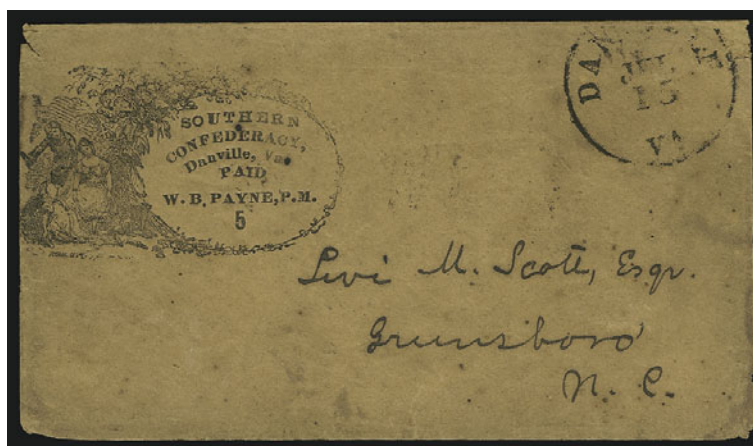 SOUTHERN
CONFEDERACY,
Danville, Va.
PAID
W. B. PAYNE, P.M.
5
VA
Levi M. Scott, Esqr.
Greensboro
N. C.